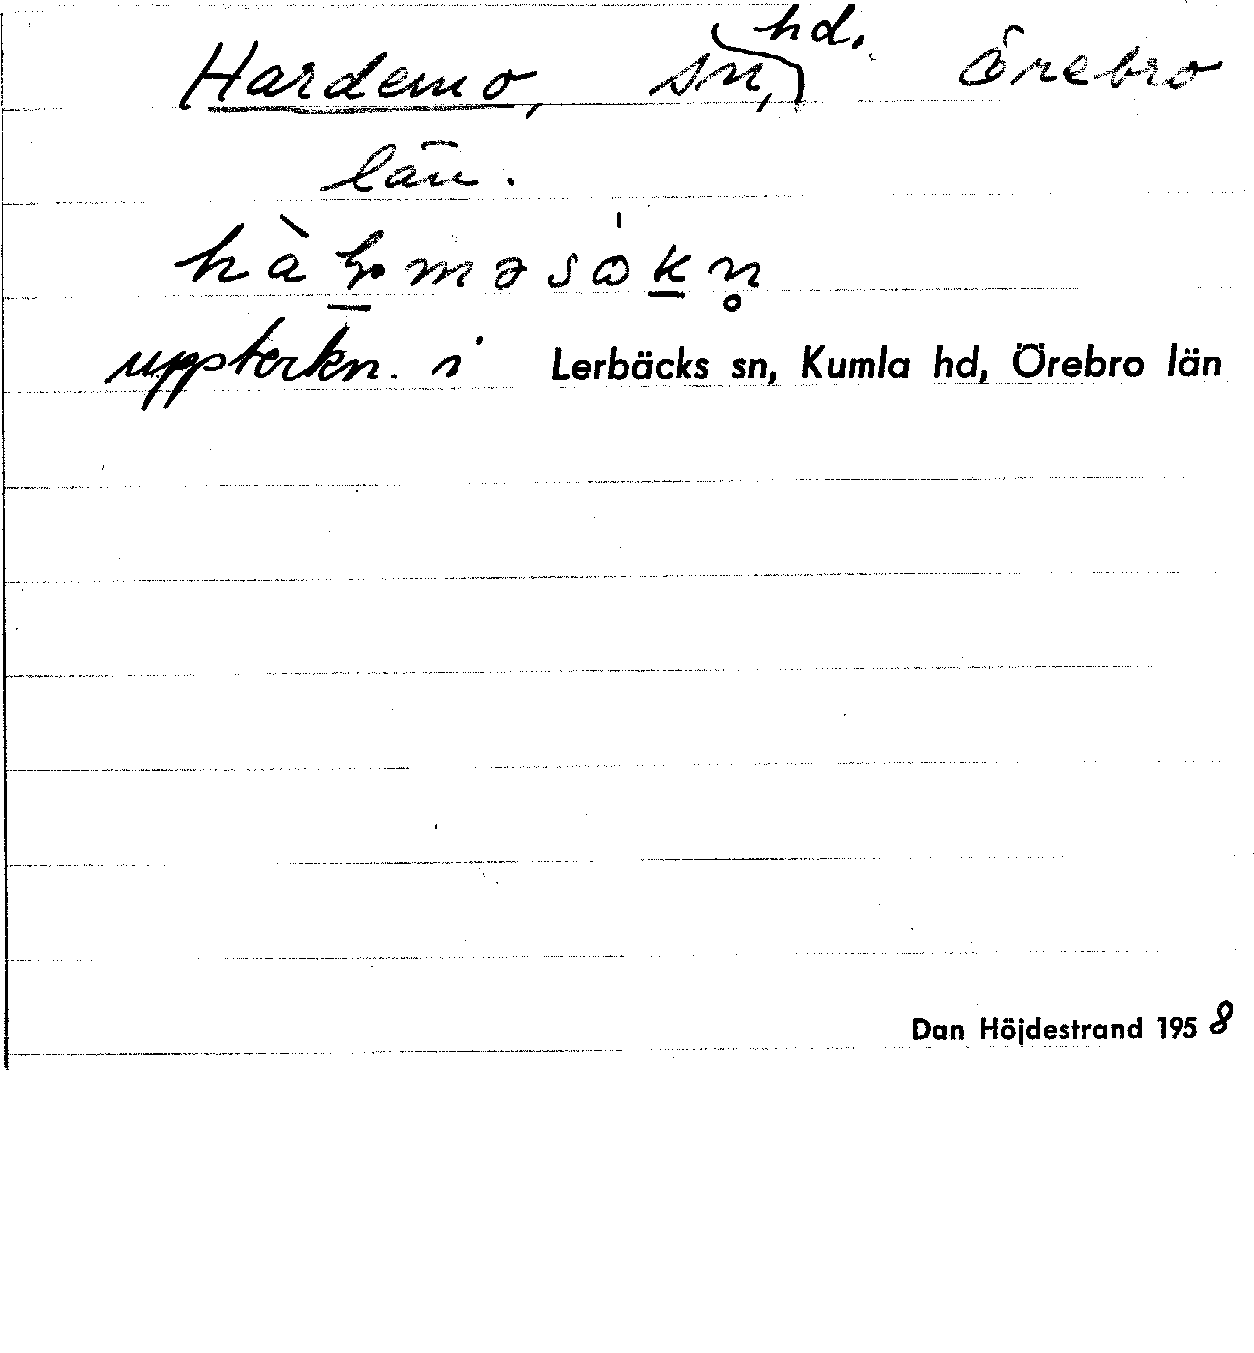 Hardemo, sn, hd. Örebro
län.
uppteckn. i Lerbäcks sn, Kumla hd, Örebro län
Dan Höjdestrand 1958